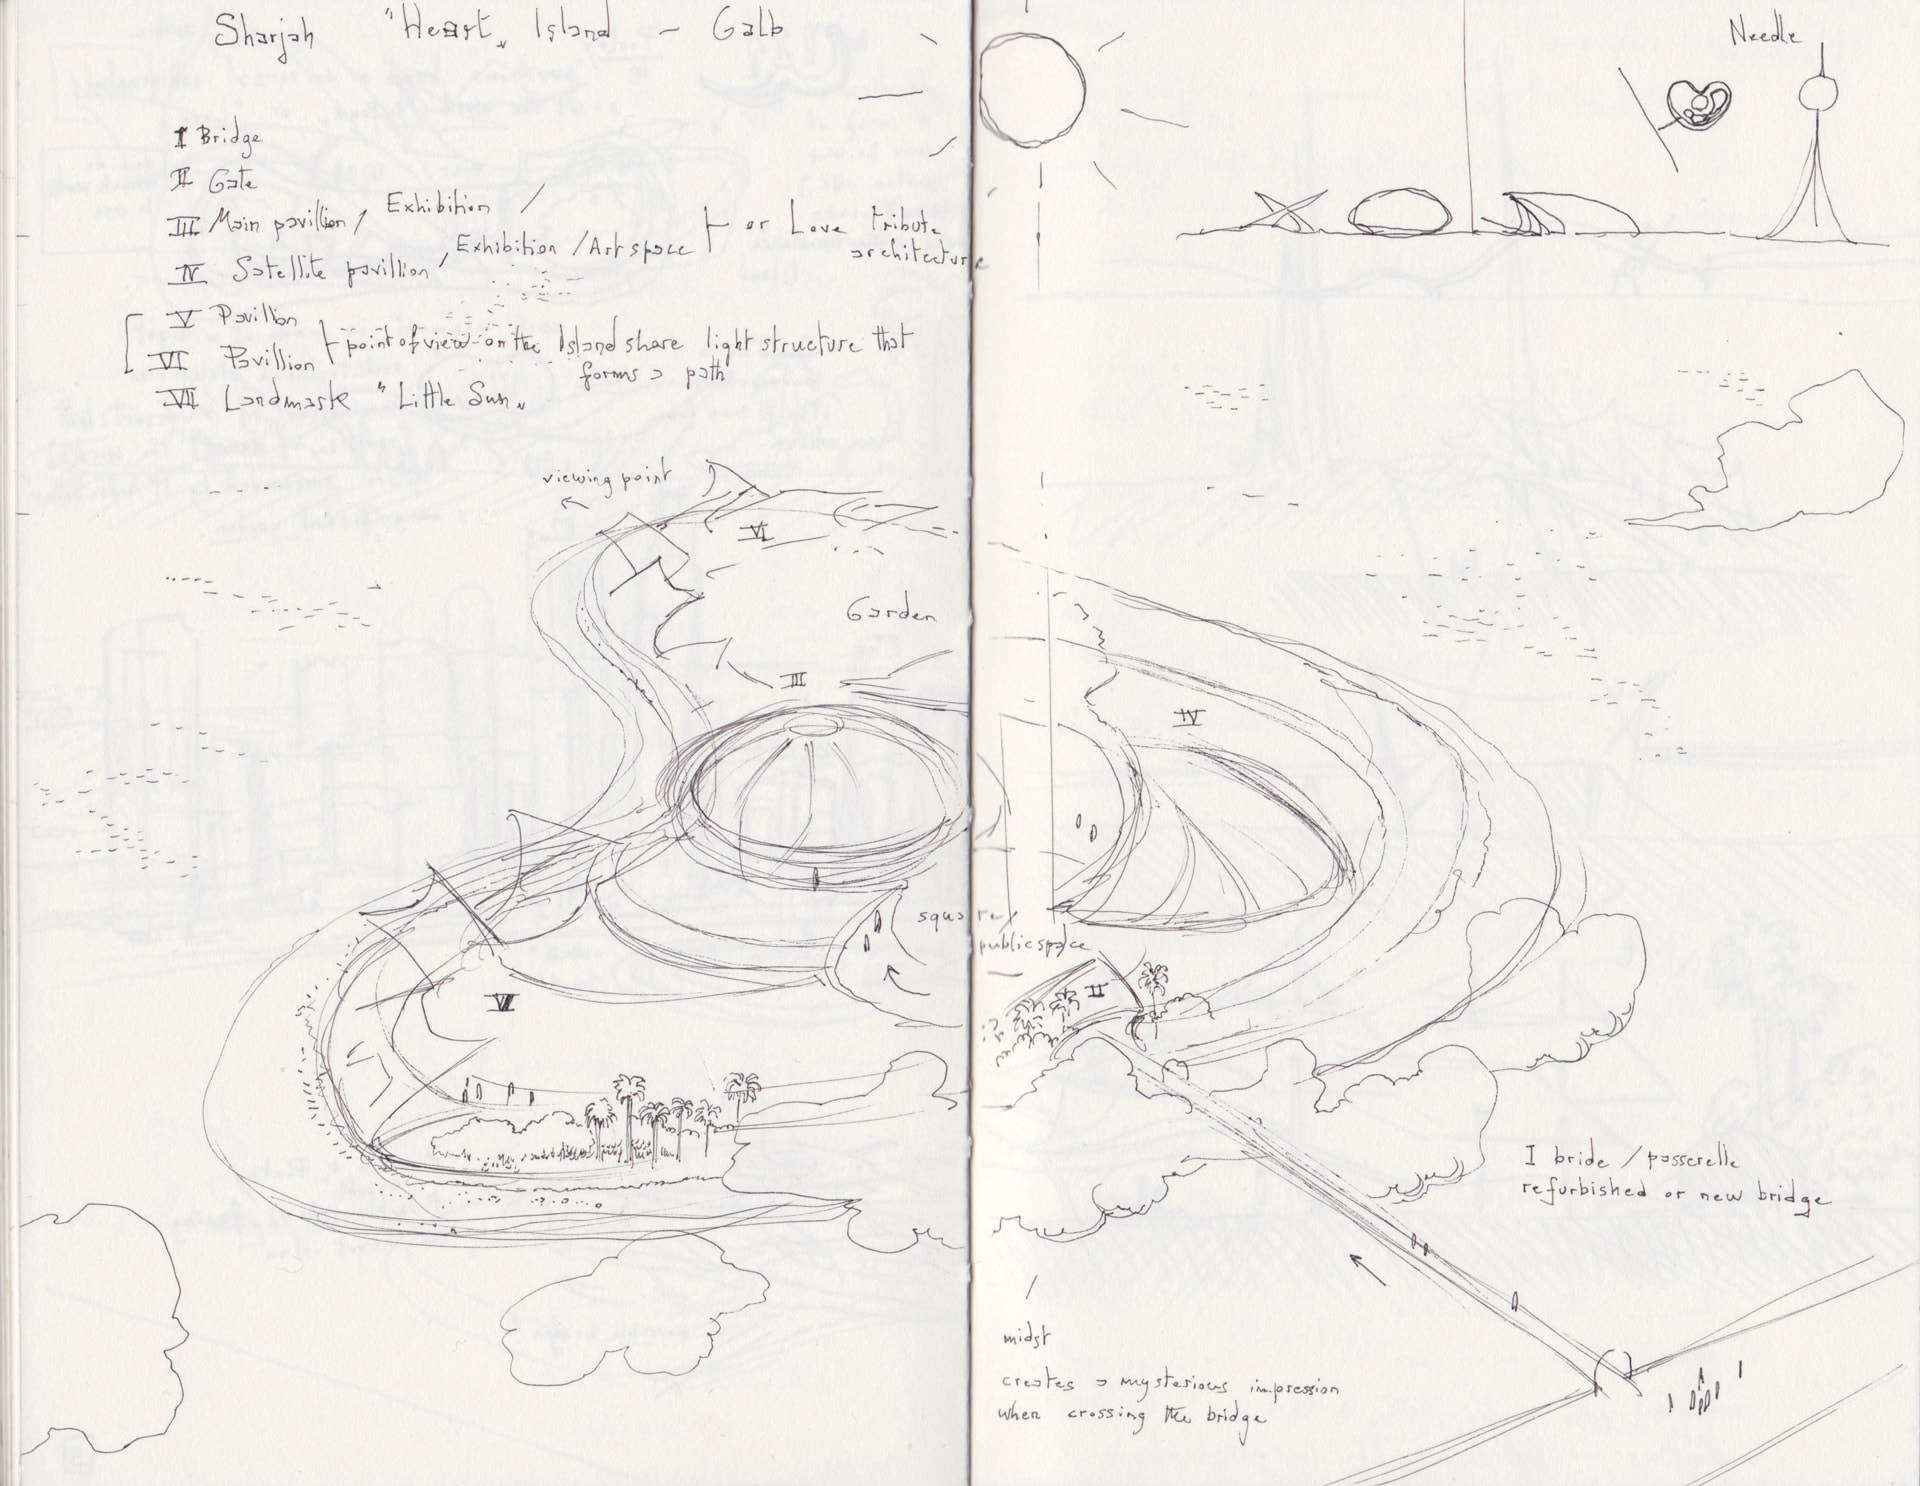 Sharjah "Heart" Island - Galb
I Bridge
II Gate
III Main pavillion / Exhibition /
IV Satellite pavillion / Exhibition / Art space
or Love tribute
architecture
V Pavillion
VI Pavillion
point of view on the Island share light structure that
forms a path
VII Landmark "Little Sun"
Needle
viewing point
VI
Garden
III
IV
square /
public space
II
I bride / passerelle
refurbished or new bridge
midst
creates a mysterious impression
when crossing the bridge